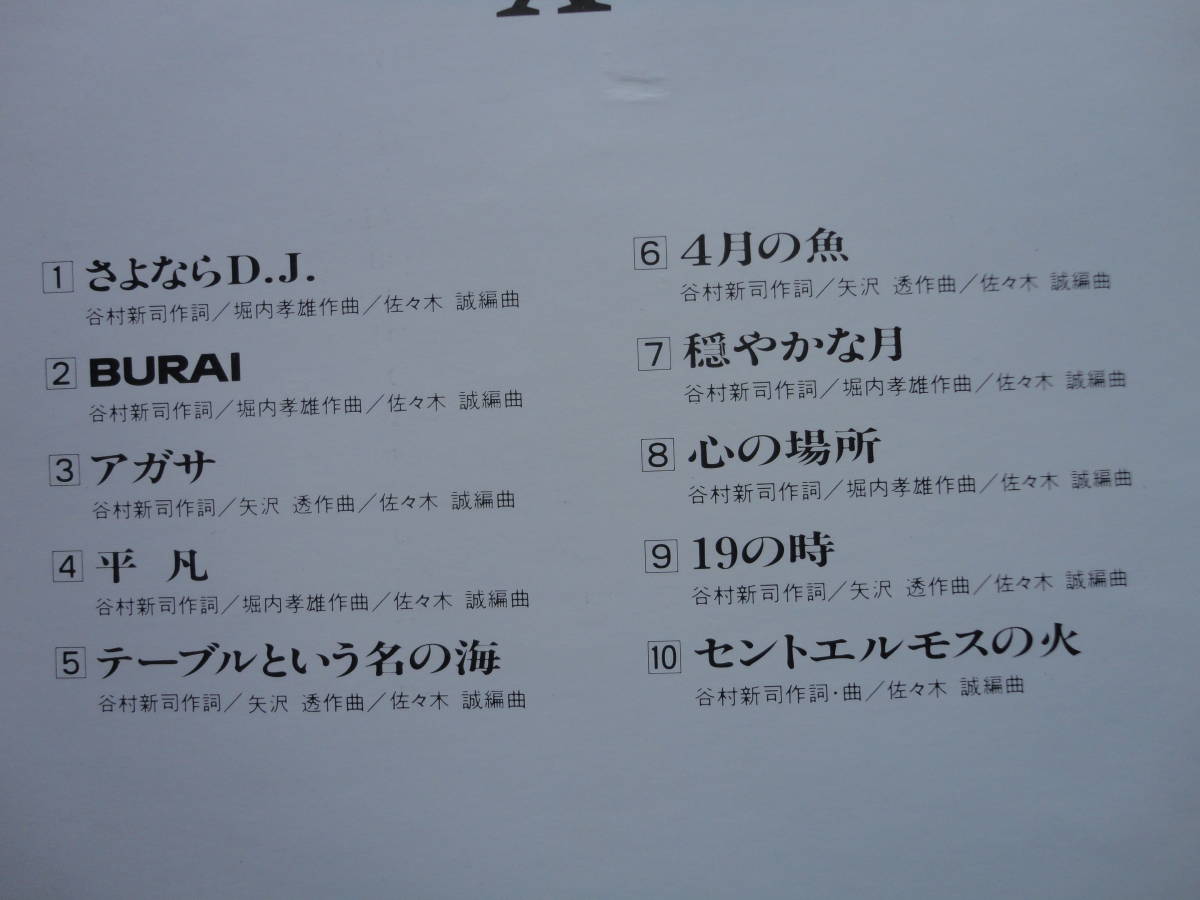 1 さよならD.J.
谷村新司作詞／堀内孝雄作曲／佐々木 誠編曲
2 BURAI
谷村新司作詞／堀内孝雄作曲／佐々木 誠編曲
3 アガサ
谷村新司作詞／矢沢 透作曲／佐々木 誠編曲
4 平 凡
谷村新司作詞／堀内孝雄作曲／佐々木 誠編曲
5 テーブルという名の海
谷村新司作詞／矢沢 透作曲／佐々木 誠編曲
6 4月の魚
谷村新司作詞／矢沢 透作曲／佐々木 誠編曲
7 穏やかな月
谷村新司作詞／堀内孝雄作曲／佐々木 誠編曲
8 心の場所
谷村新司作詞／堀内孝雄作曲／佐々木 誠編曲
9 19の時
谷村新司作詞／矢沢 透作曲／佐々木 誠編曲
10 セントエルモスの火
谷村新司作詞・曲／佐々木 誠編曲